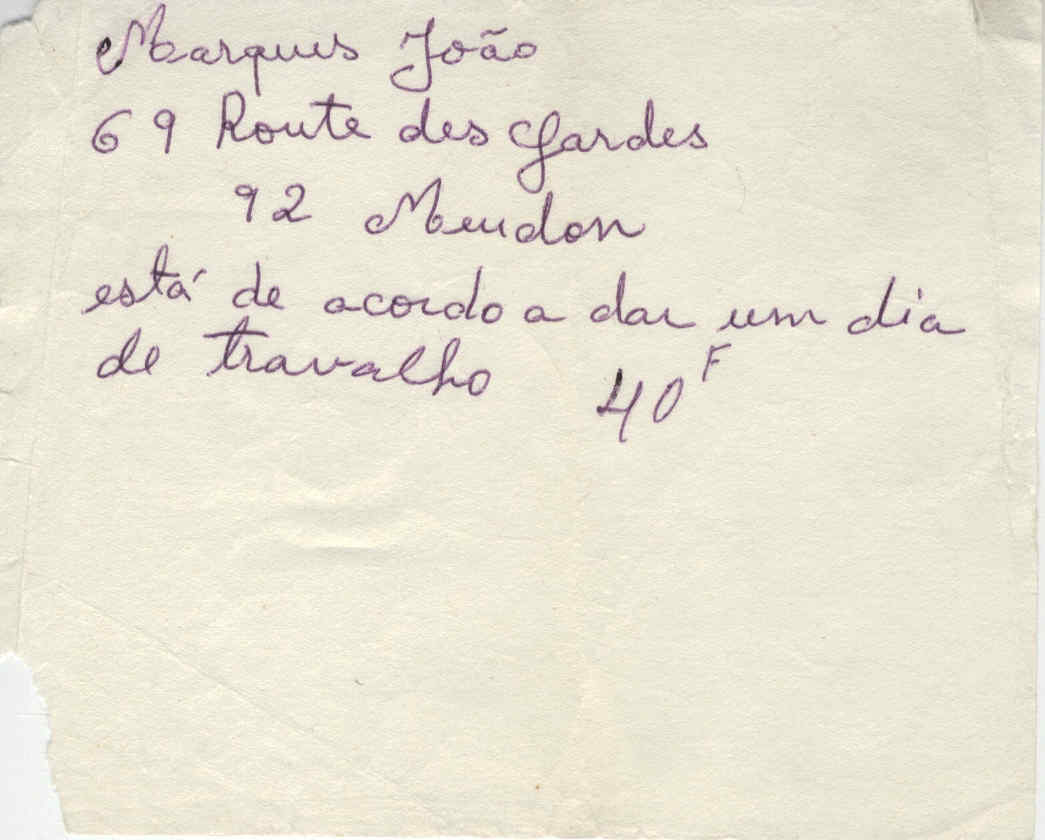 Marques João
69 Route des Gardes
92 Meudon
está de acordo a dar um dia
de travalho 40F